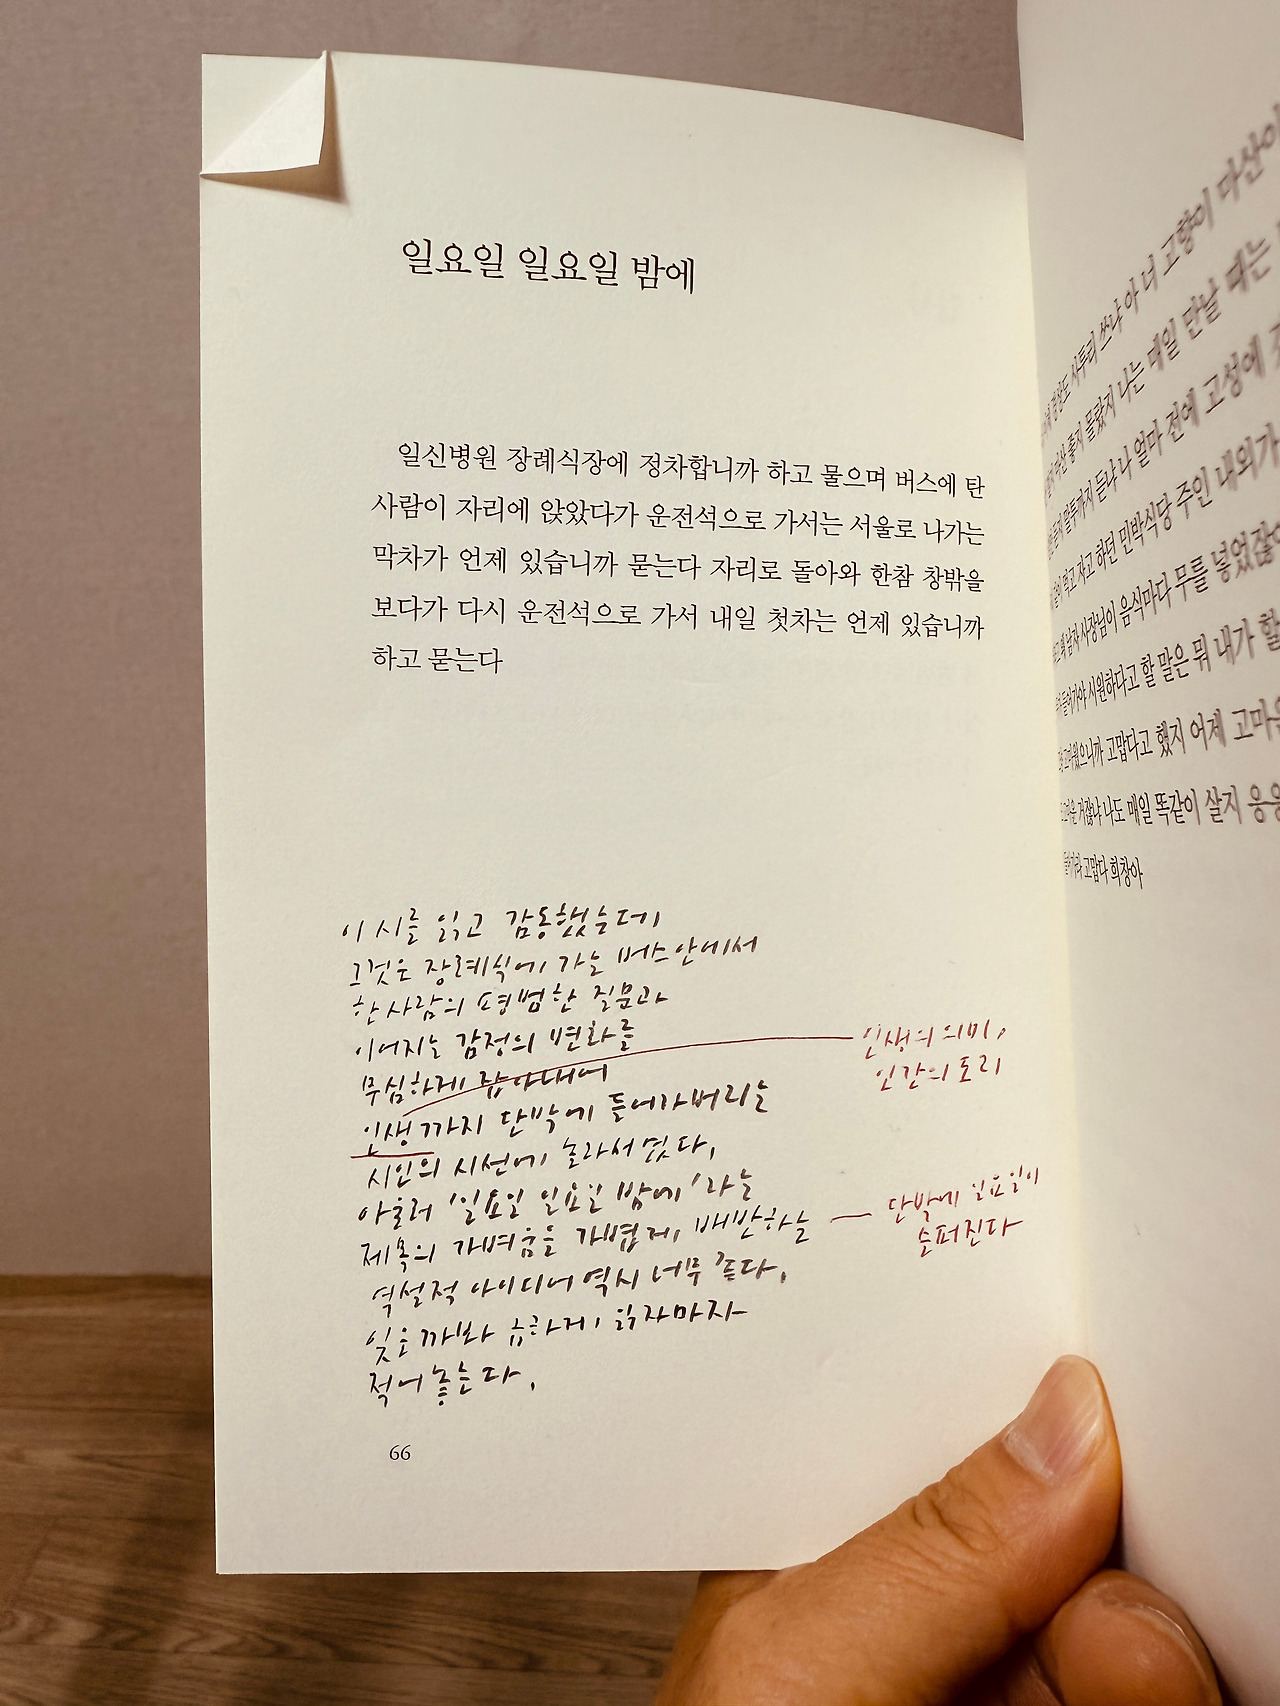 일요일 일요일 밤에
일신병원 장례식장에 정차합니까 하고 물으며 버스에 탄
사람이 자리에 앉았다가 운전석으로 가서는 서울로 나가는
막차가 언제 있습니까 묻는다 자리로 돌아와 한참 창밖을
보다가 다시 운전석으로 가서 내일 첫차는 언제 있습니까
하고 묻는다
이 시를 읽고 감동했는데
그것은 장례식에 가는 버스 안에서
한 사람의 평범한 질문과
이어지는 감정의 변화를
무심하게 잡아내어
인생까지 단박에 들어가버리는
시인의 시선에 놀라서였다,
아울러 '일요일 일요일 밤에'라는
제목의 가벼움을 가볍게, 배반하는
역설적 아이디어 역시 너무 좋다,
잊을까봐 급하게 읽자마자
적어놓는다,
인생의 의미,
인간의 도리
단박에 일요일이
슬퍼진다
66
경상도 사투리 쓰냐 아 너 고향이 마산이
좋지 몰랐지 나는 매일 만날 때는
말투까지 듣냐 나 얼마 전에 고성에
먹고 자고 하던 민박식당 주인 내외가
남자 사장님이 음식마다 무를 넣었잖아
들어가야 시원하다고 할 말은 뭐 내가 할
고마웠으니까 고맙다고 했지 어제 고마운
거잖냐 나도 매일 똑같이 살지 응응
고맙다 희창아